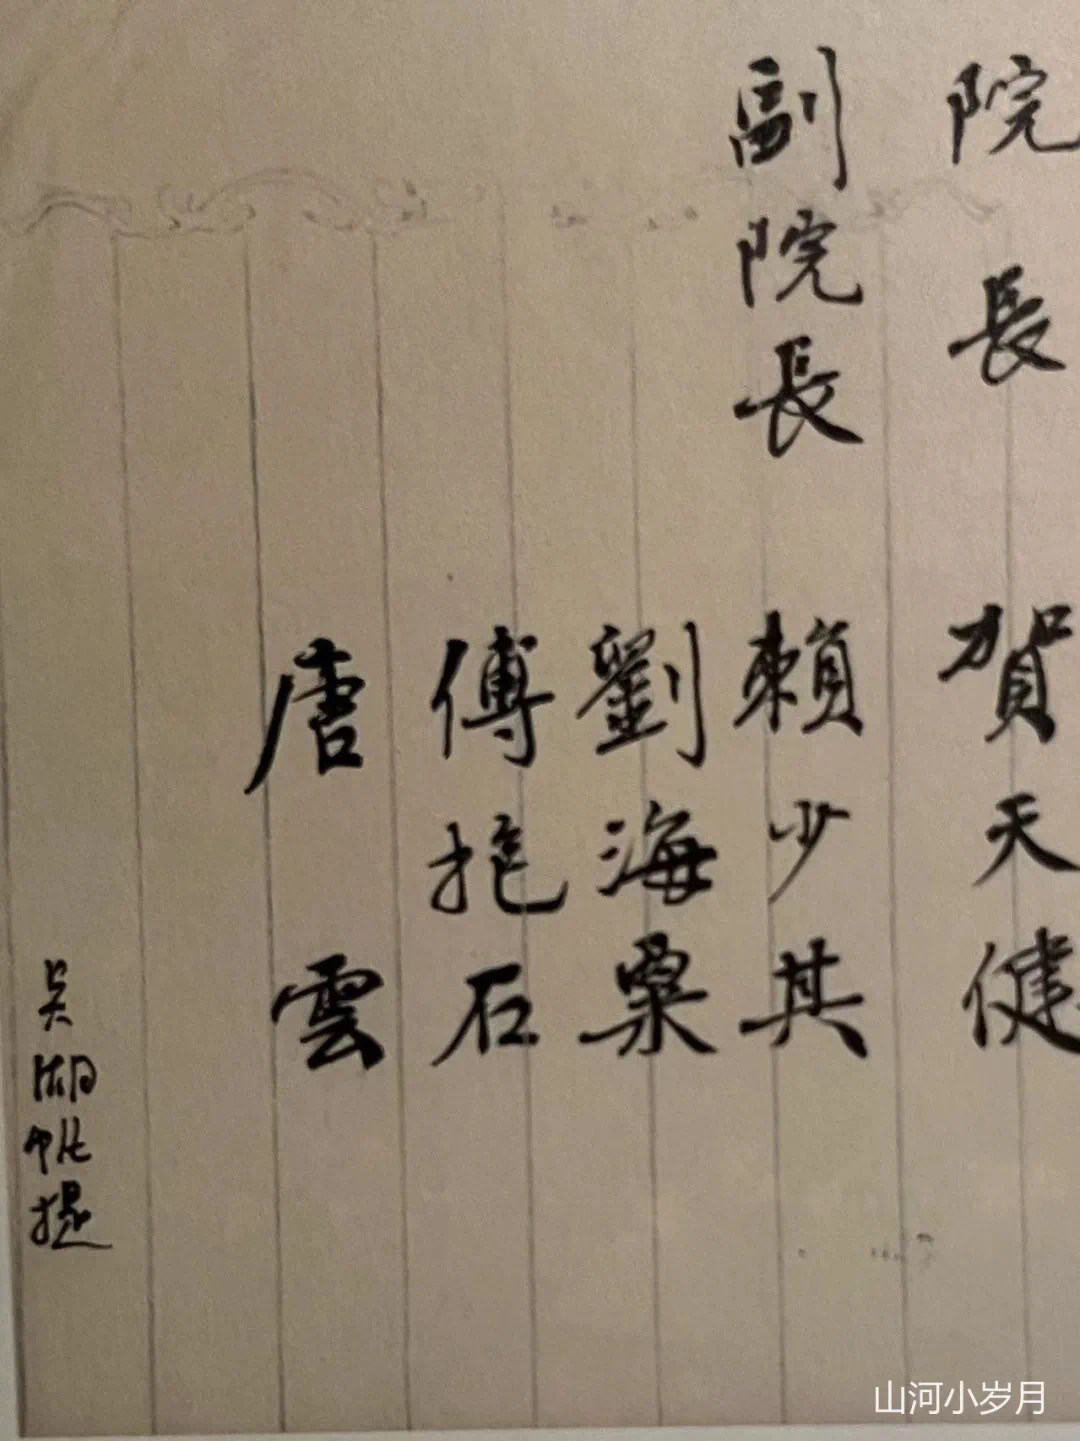 院長 賀天健
副院長 賴少其
劉海粟
傅抱石
唐雲
吳湖帆提
山河小岁月